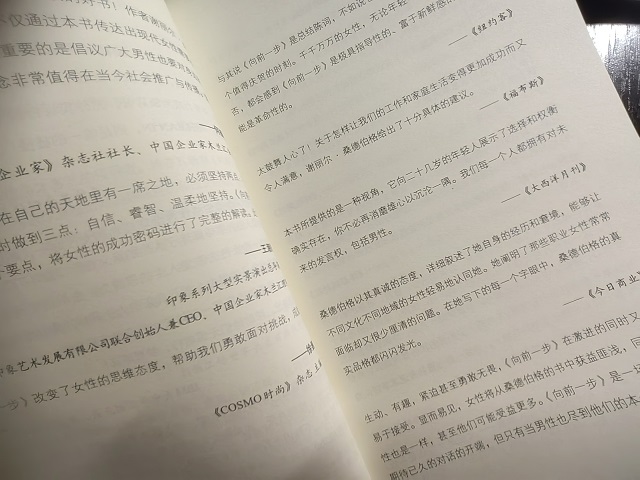 的好书！作者谢丽
不仅通过本书传达出现代女性
重要的是倡议广大男性也要
念非常值得在当今社会推广与
企业家》杂志社社长、中国企业家木兰
在自己的天地里有一席之地，必须坚持
时做到三点：自信、睿智、温柔地坚持。《向
要点，将女性的成功密码进行了完整的解读。
印象系列大型实景演出
印象艺术发展有限公司联合创始人兼CEO、中国企业家木兰汇
一步》改变了女性的思维态度，帮助我们勇敢面对挑战，
《COSMO时尚》杂志主
与其说《向前一步》是总结陈词，不如说
个值得庆贺的时刻。千千万万的女性，无论年轻
否，都会感到《向前一步》是极具指导性的、富于新鲜感的
能是革命性的。
——《纽约客》
太鼓舞人心了！关于怎样让我们的工作和家庭生活变得更加成功而又
令人满意，谢丽尔·桑德伯格给出了十分具体的建议。
——《福布斯》
本书所提供的是一种视角，它向二十几岁的年轻人展示了选择和权衡
确实存在，你不必再消磨雄心以沉沦一隅。我们每一个人都拥有对未
来的发言权，包括男性。
——《大西洋月刊》
桑德伯格以其真诚的态度，详细叙述了她自身的经历和窘境，能够让
不同文化不同地域的女性轻易地认同她。她阐明了那些职业女性常常
面临却又很少厘清的问题。在她写下的每一个字眼中，桑德伯格的真
实品格都闪闪发光。
——《今日商业
生动、有趣，紧迫甚至勇敢无畏，《向前一步》在激进的同时又
易于接受。显而易见，女性将从桑德伯格的书中获益匪浅，同
性也是一样，甚至他们可能受益更多。《向前一步》是一场
期待已久的对话的开端，但只有当男性也尽到他们的本